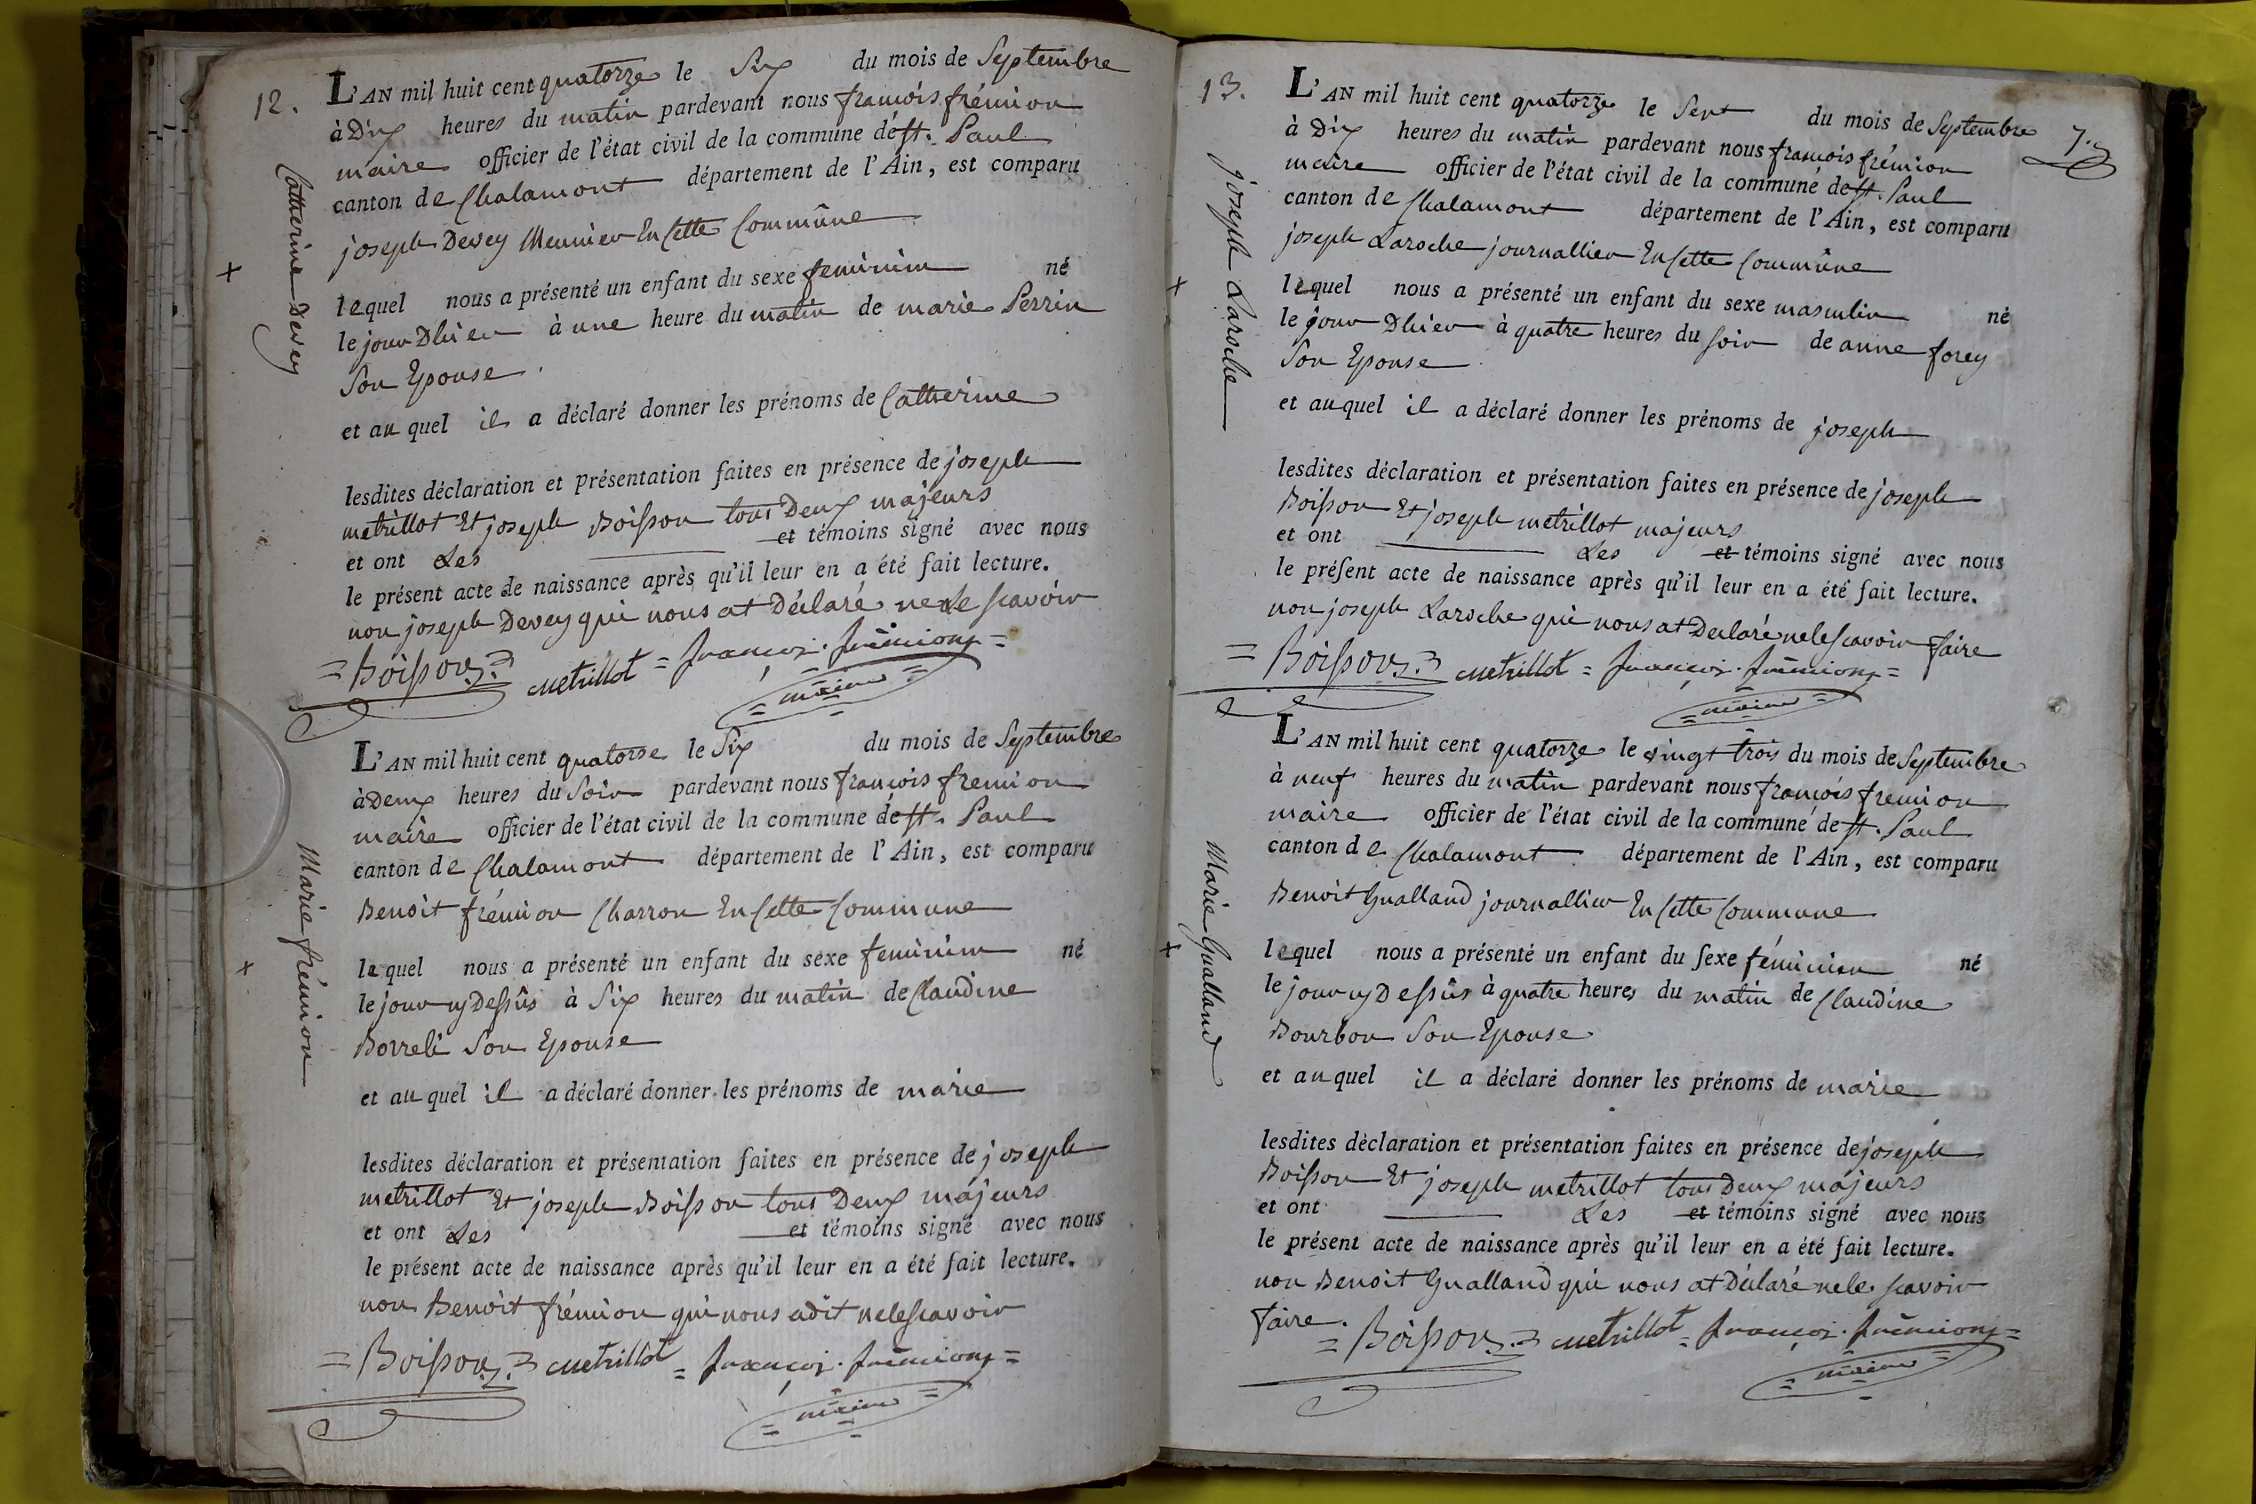 12.
L'AN mil huit cent quatorze le Six du mois de Septembre
à Dix heures du matin pardevant nous françois frémion
maire officier de l'état civil de la commune de st. Paul
canton de Chalamont département de l'Ain, est comparu
joseph Devey Meunier En Cette Commûne
lequel nous a présenté un enfant du sexe feminim né
le jour Dhier à une heure du matin de marie Perrin
Son Epouse.
et au quel il a déclaré donner les prénoms de Catherine
lesdites déclaration et présentation faites en présence de joseph
metrillot Et joseph Boisson tous Deux majeurs
et ont Les et témoins signé avec nous
le présent acte de naissance après qu'il leur en a été fait lecture.
non joseph Devey qui nous at Déclaré ne le scavoir
= Boisson metrillot = françois frémion =
= maire =
Catherine Devey
+
L'AN mil huit cent quatorse le Six du mois de Septembre
à Deux heures du Soir pardevant nous françois fremion
maire officier de l'état civil de la commune de st. Paul
canton de Chalamont département de l'Ain, est comparu
Benoit frémion Charron En Cette Commune
lequel nous a présenté un enfant du sexe feminim né
le jour cy Dessûs à Six heures du matin de Claudine
Borreli Son Epouse
et au quel il a déclaré donner les prénoms de marie
lesdites déclaration et présentation faites en présence de joseph
metrillot Et joseph Boisson tous Deux majeurs
et ont Les et témoins signé avec nous
le présent acte de naissance après qu'il leur en a été fait lecture.
non Benoit frémion qui nous adit ne le scavoir
= Boisson metrillot = françois frémion =
= maire =
Marie frémion
+
13.
7.
L'AN mil huit cent quatorze le Sept du mois de Septembre
à Dix heures du matin pardevant nous françois frémion
maire officier de l'état civil de la commune de st. Paul
canton de Chalamont département de l'Ain, est comparu
joseph Laroche journallier En Cette Commûne
lequel nous a présenté un enfant du sexe masculin né
le jour Dhier à quatre heures du soir de anne forey
Son Epouse
et au quel il a déclaré donner les prénoms de joseph
lesdites déclaration et présentation faites en présence de joseph
Boisson Et joseph metrillot majeurs
et ont Les et témoins signé avec nous
le présent acte de naissance après qu'il leur en a été fait lecture.
non joseph Laroche qui nous at Declaré ne le scavoir faire
= Boisson metrillot = françois frémion =
= maire =
joseph Laroche
+
L'AN mil huit cent quatorze le vingt trois du mois de Septembre
à neuf heures du matin pardevant nous françois fremion
maire officier de l'état civil de la commune de st. Paul
canton de Chalamont département de l'Ain, est comparu
Benoit Gualland journallier En Cette Commune
lequel nous a présenté un enfant du sexe féminien né
le jour cy Dessûs à quatre heures du matin de Claudine
Bourbon Son Epouse
et au quel il a déclaré donner les prénoms de marie
lesdites déclaration et présentation faites en présence de joseph
Boisson Et joseph metrillot tous Deux majeurs
et ont Les et témoins signé avec nous
le présent acte de naissance après qu'il leur en a été fait lecture.
non Benoit Gualland qui nous at Déclaré ne le scavoir
faire.
= Boisson metrillot = françois frémion =
= maire =
Marie Gualland
+